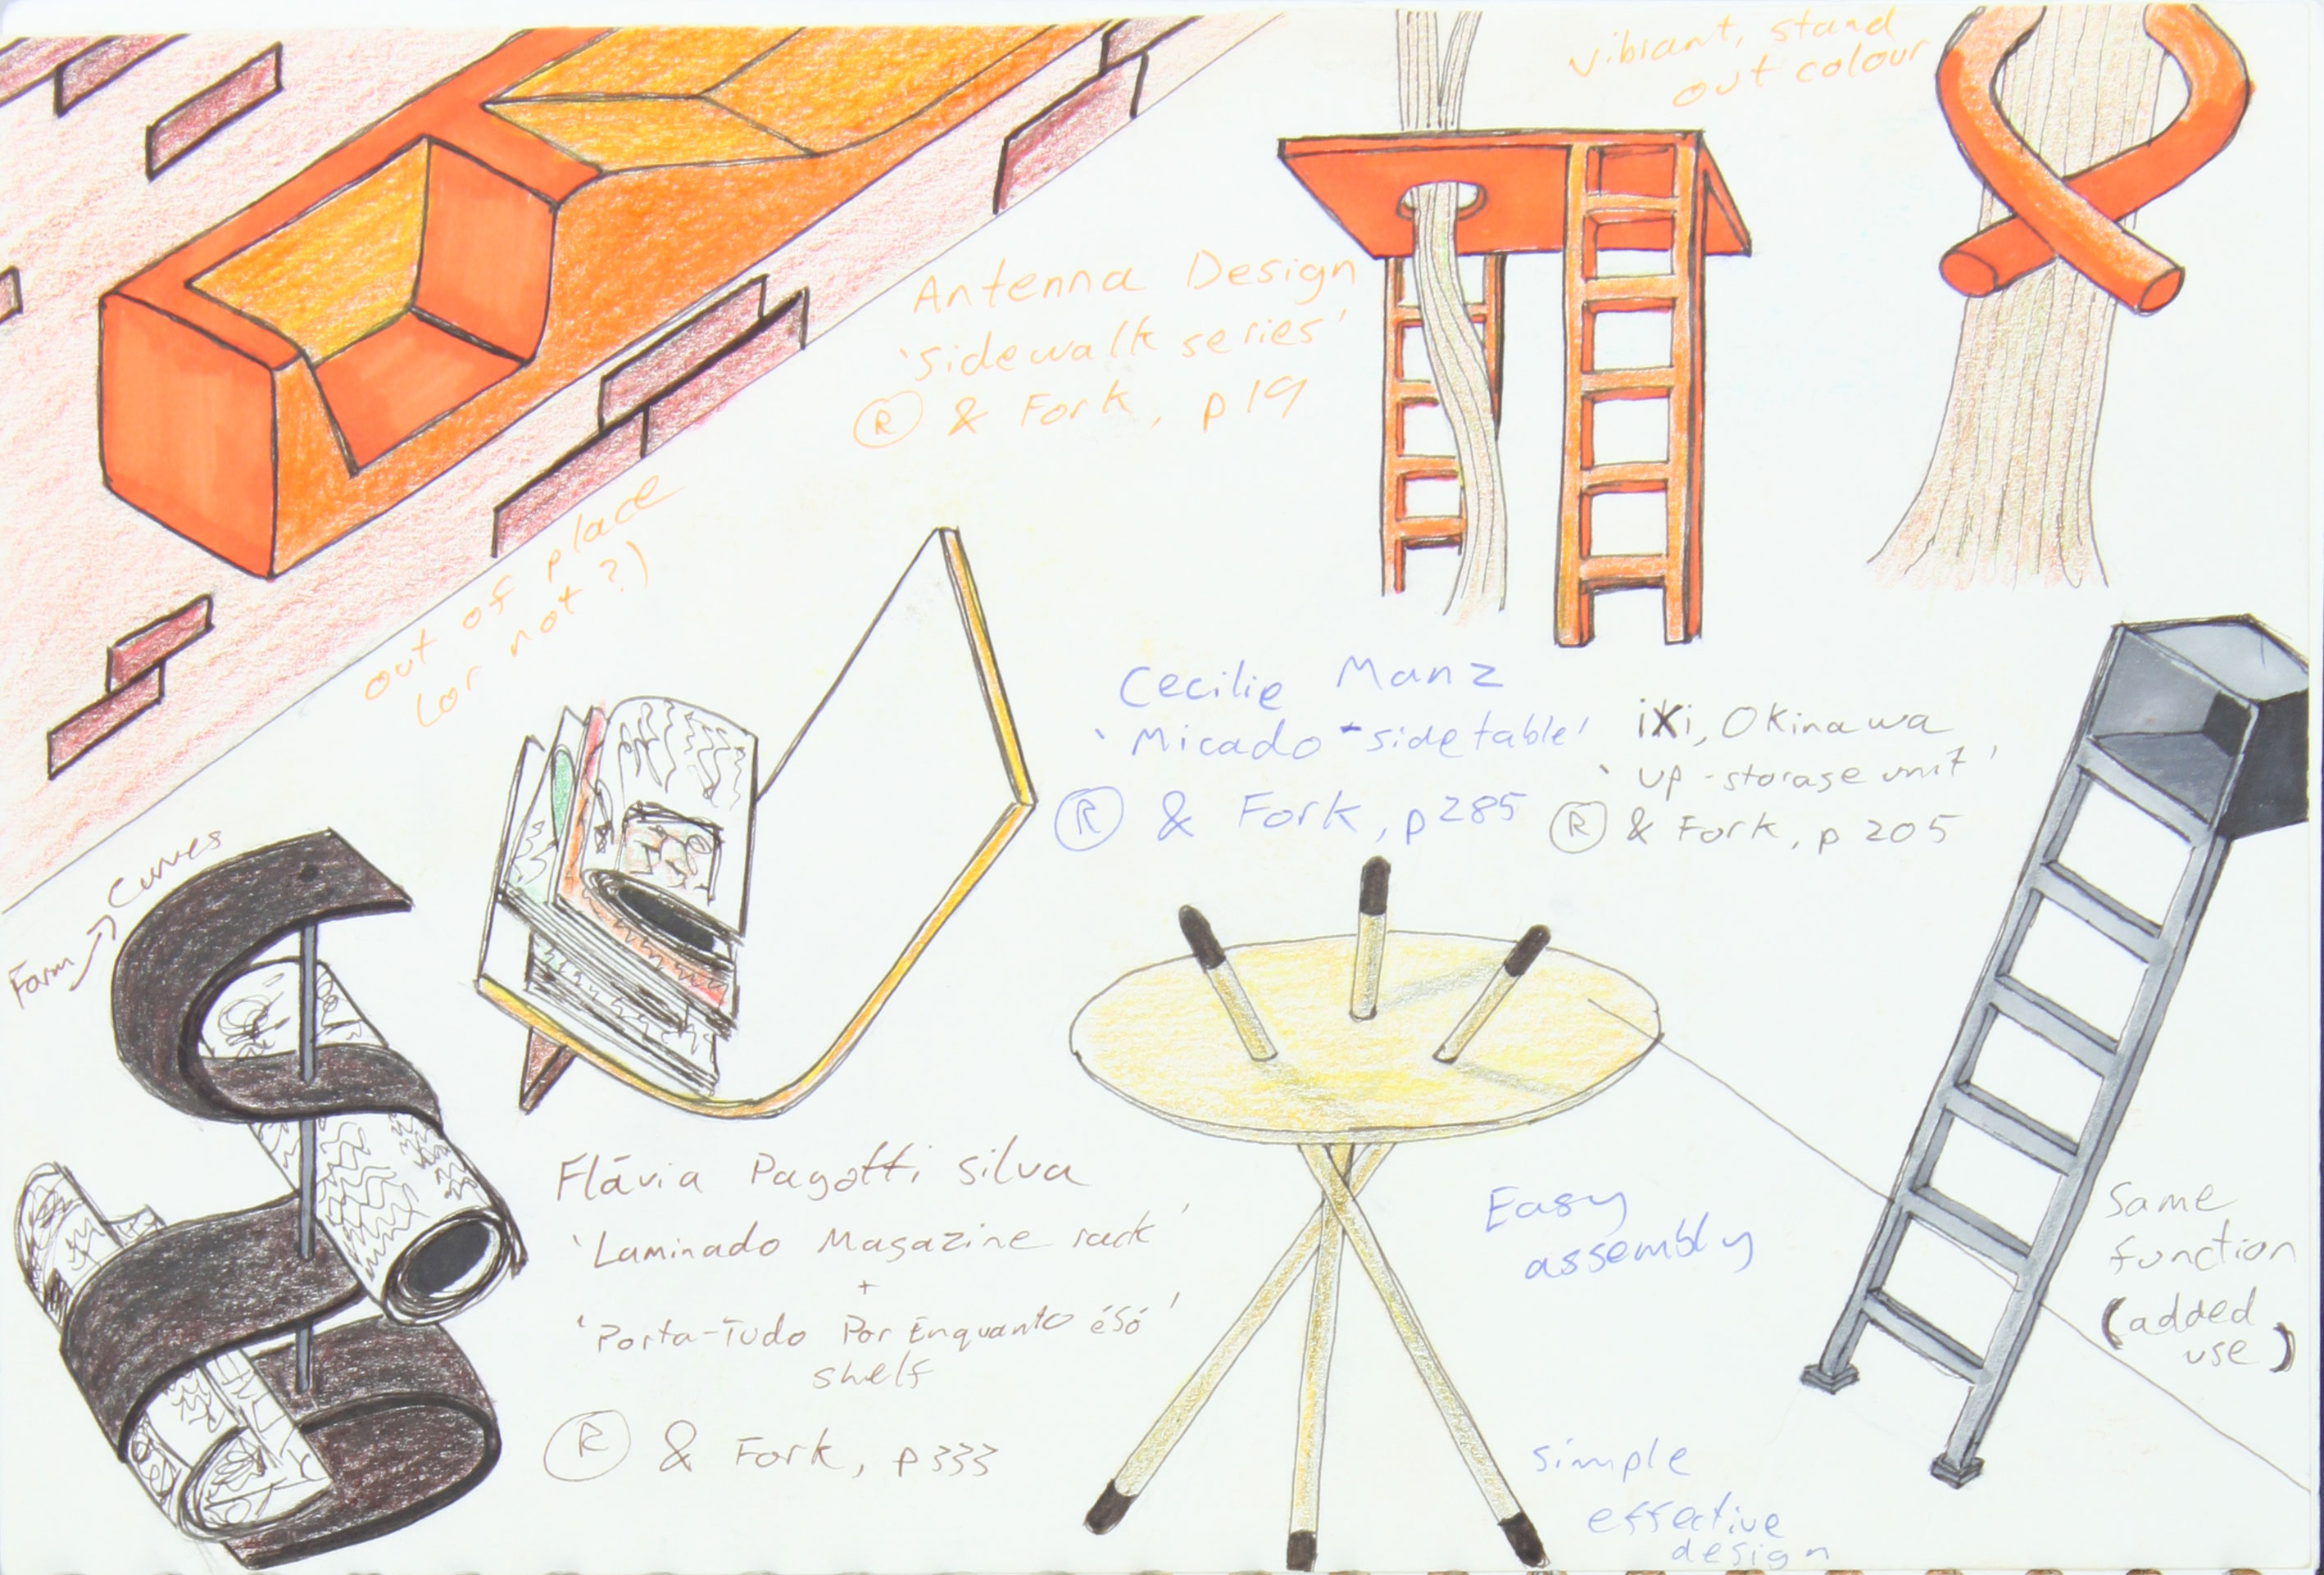 vibrant, stand
out colour
Antenna Design
'sidewalk series'
Ⓡ & Fork, p19
out of place
(or not?)
Cecilie Manz
'Micado - side table'
Ⓡ & Fork, p285
iXi, Okinawa
'up - storage unit'
Ⓡ & Fork, p 205
Form → Curves
Flávia Pagotti Silva
'Laminado Magazine rack'
+
'Porta-Tudo Por Enquanto ésó'
shelf
Ⓡ & Fork, p333
Easy
assembly
Same
function
(added
use)
simple
effective
design